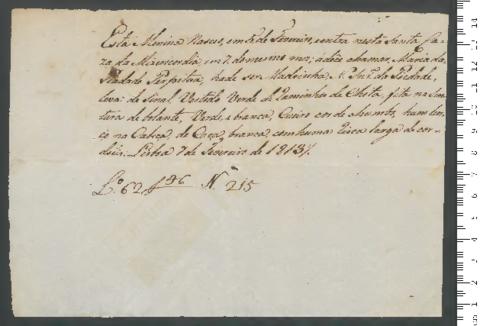 Esta Menina Nasceo, em 5 de Fevereiro, entra nesta Santa Ca-
za da Mizericordia, em 7, do mesmo mez, adece chamar, Maria da
Piedade Perpetua, hade ser Madrinha, N. Snr.ª da Piedade,
Leva: de Sinal, Vestido Verde de Raminhos de Chita, fita na Sin-
tura de volante, Verde, e branca, Cueiro cor de chumbo, hum len-
ço na Cabeça, de Caça, branca, com huma Lisca larga de cor-
dois. Lisboa 7 de Fevereiro de 1813
L.º 62 f 96 N 215